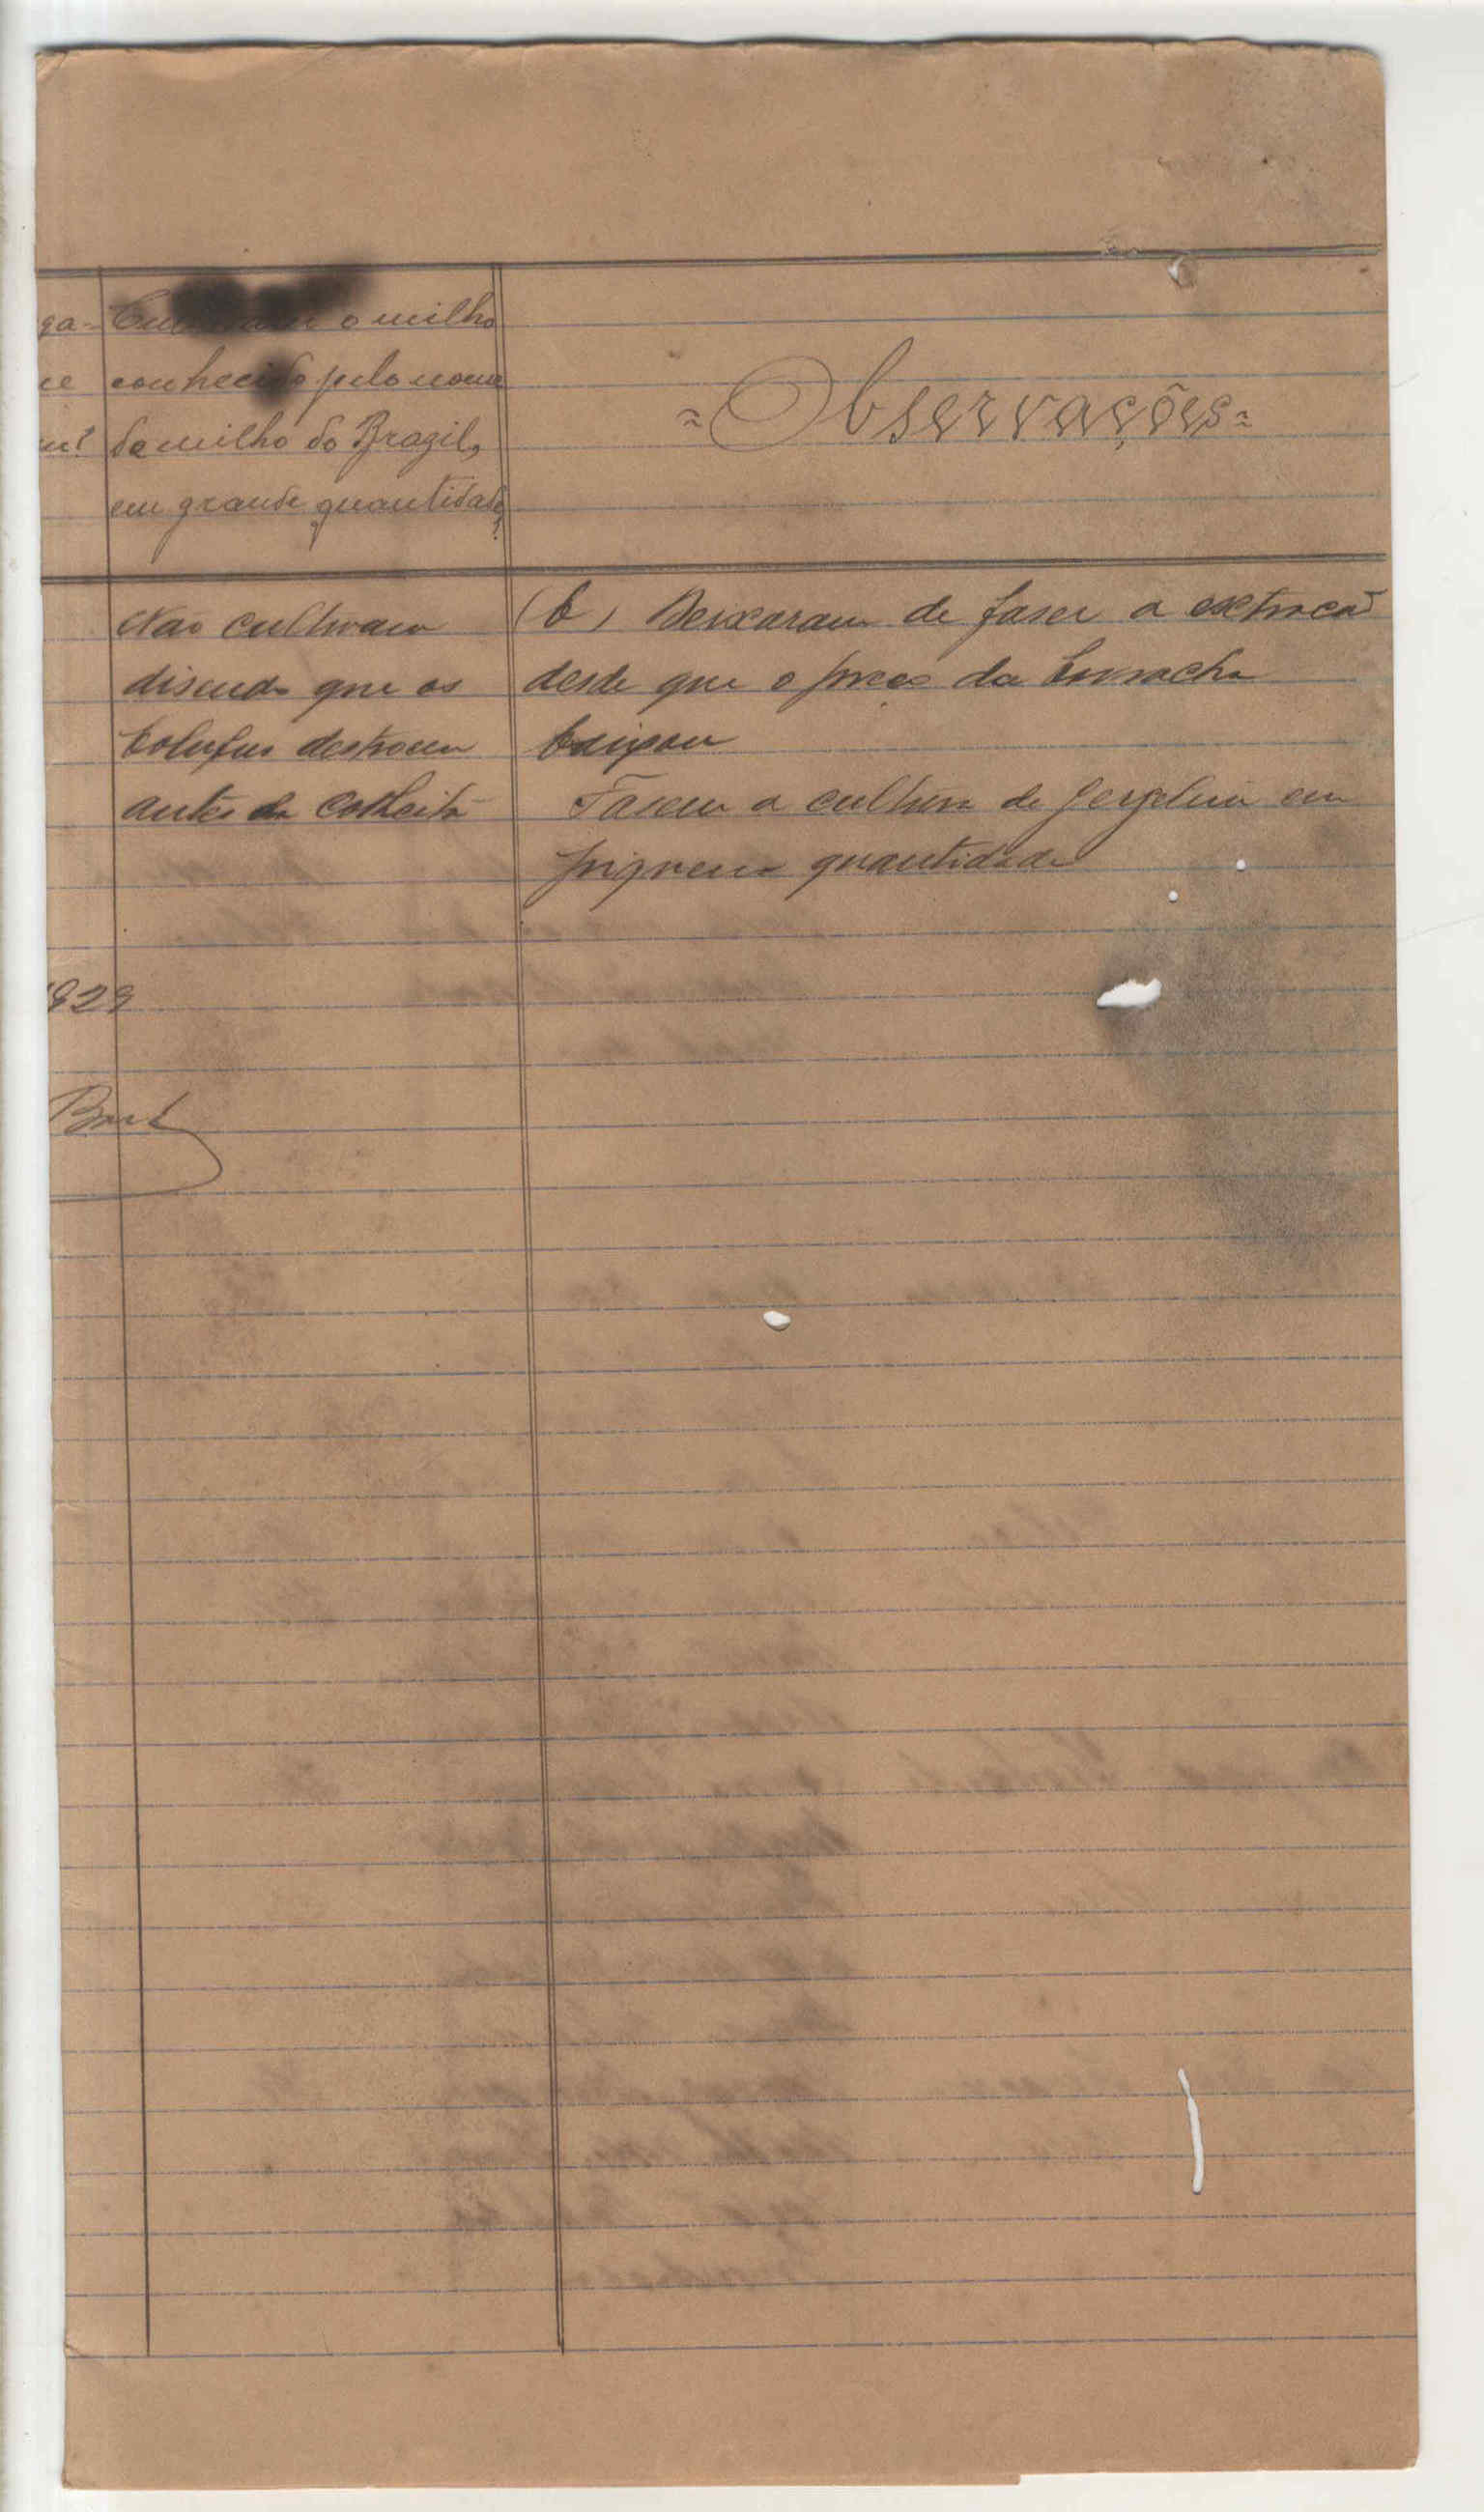 ga-
ue
Cultivam o milho
conhecido pelo nome
de milho do Brazil,
em grande quantidade,
=Observações=
Não cultivam
disendo que os
antes da colheita
(b) Deixaram de faser a extração
desde que o preço da borracha
baixou
Fasem a cultura de gergelim em
piquena quantidade
1929